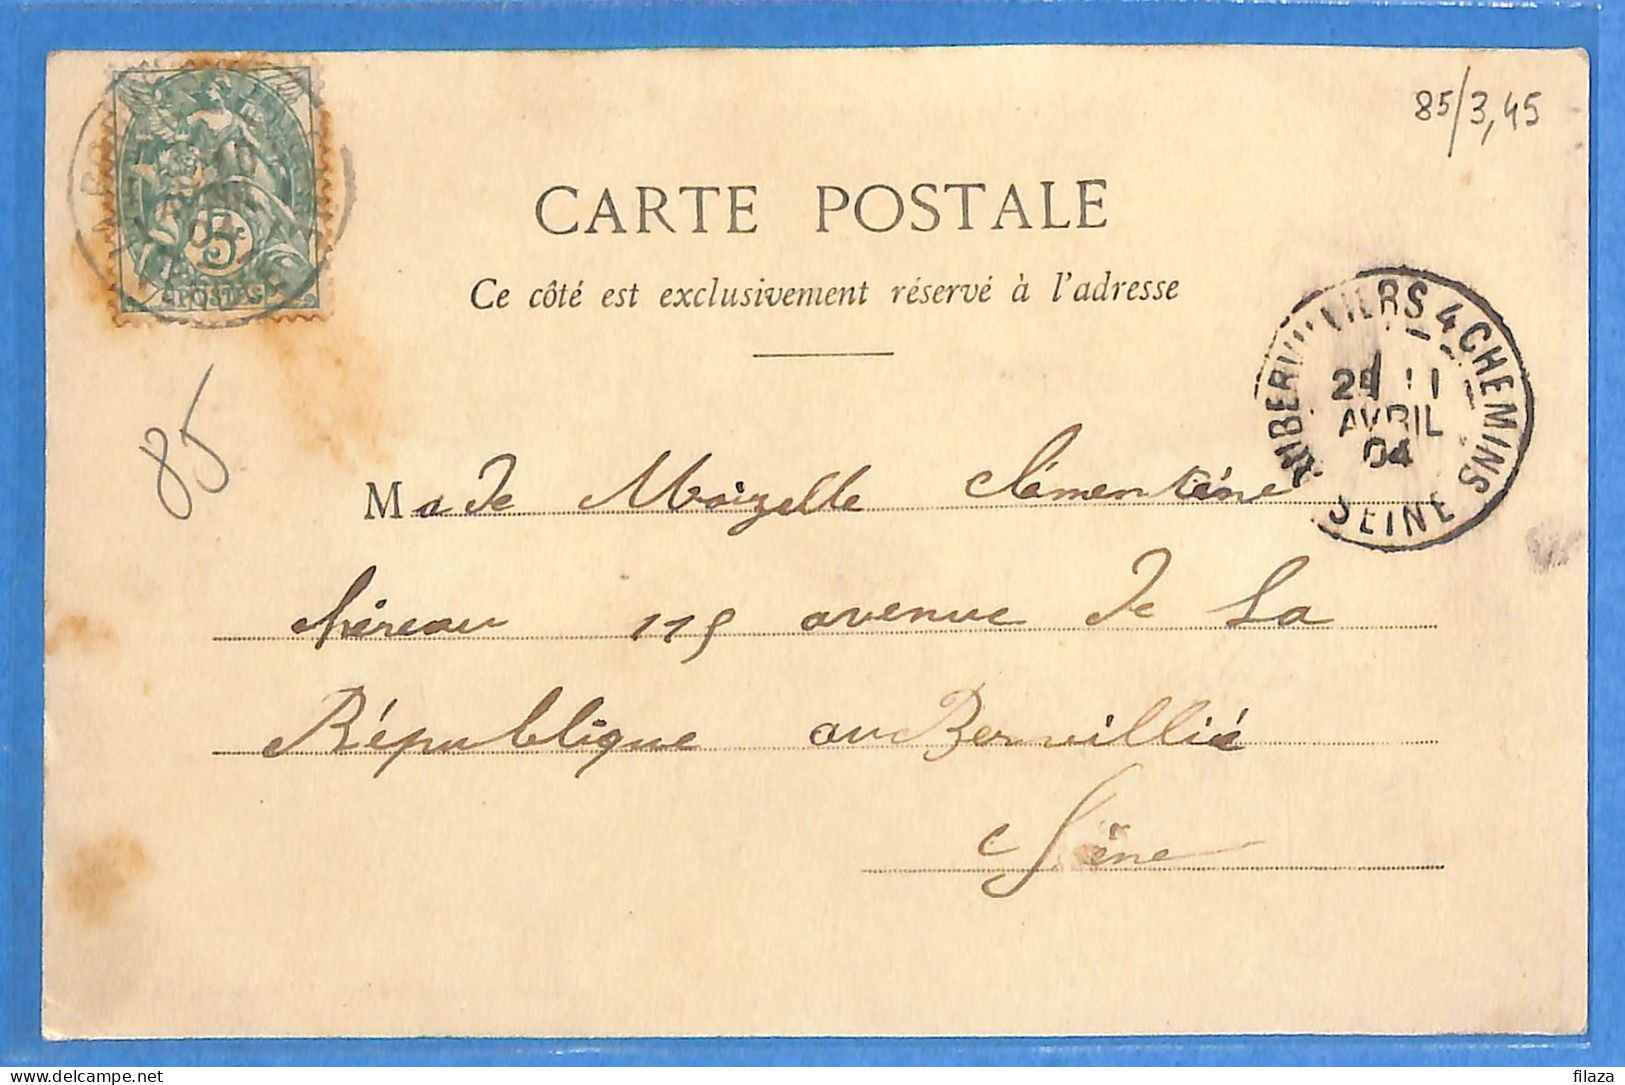 85/3,45
5c
POSTES
CARTE POSTALE
Ce côté est exclusivement réservé à l'adresse
AUBERVILLIERS 4 CHEMINS
25 11
AVRIL
04
SEINE
85
Made Moizelle Clémenténe
héreau 115 avenue de La
République auBervillié
Séne
delcampe.net
filaza